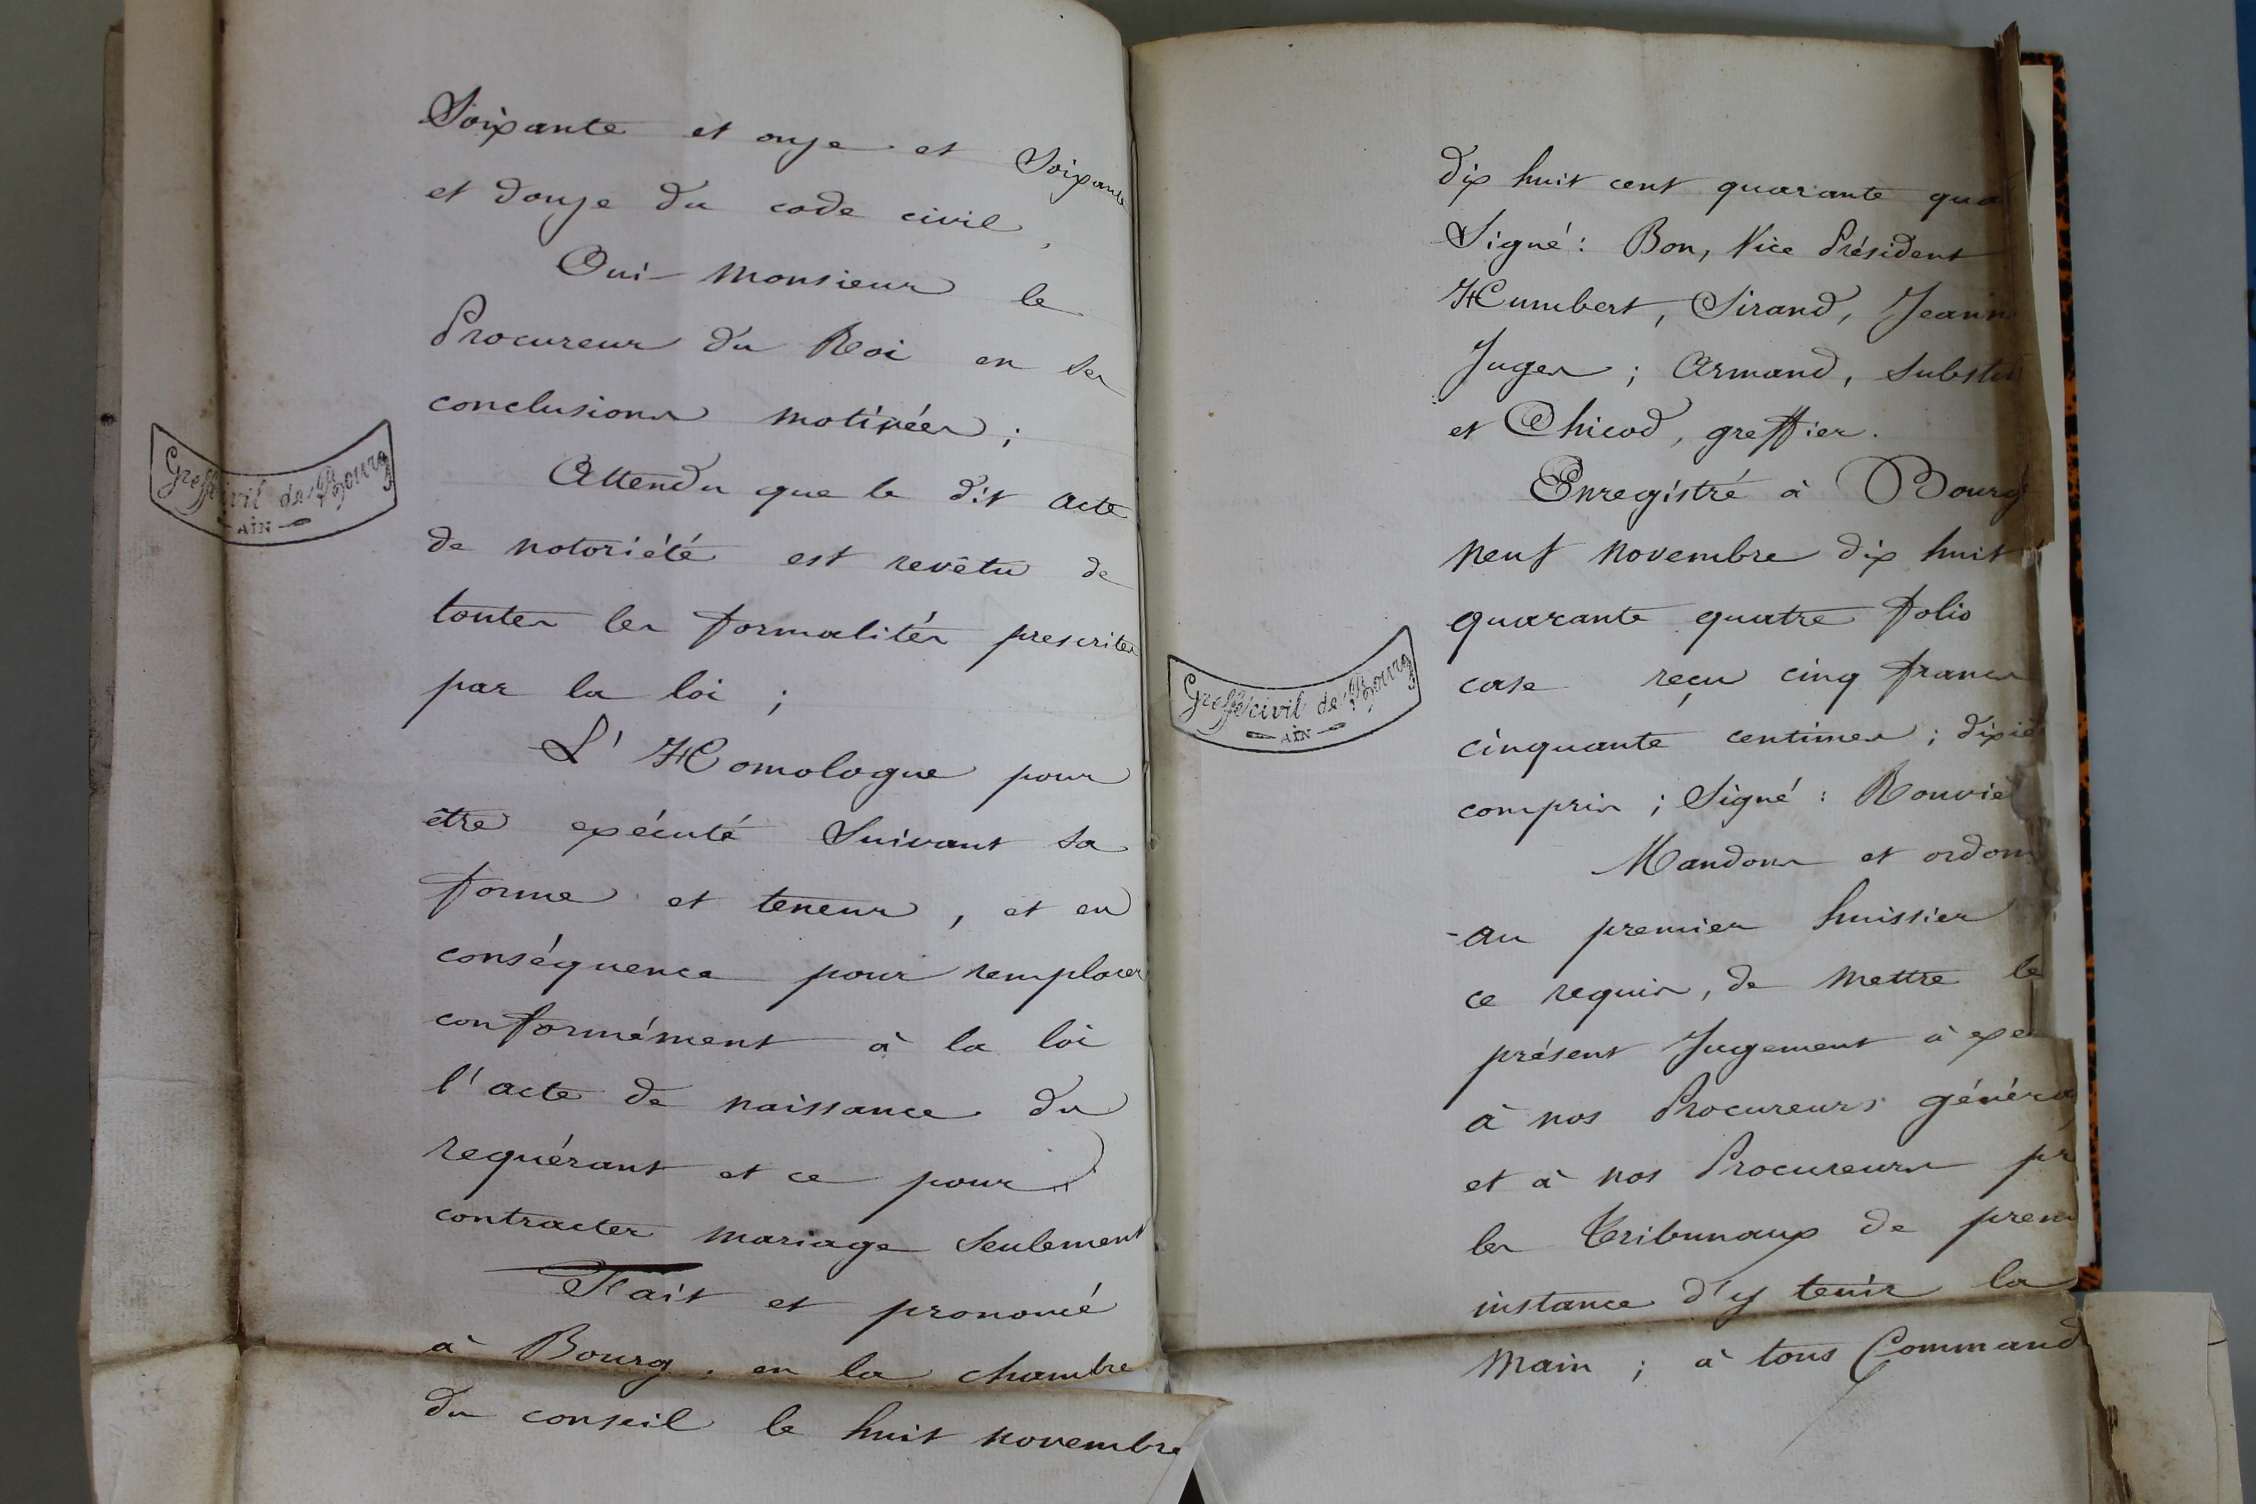 Soixante et onze et Soixante
et douze du code civil,
Oui Monsieur le
Procureur du Roi en ses
conclusions motivées ;
Attendu que le dit acte
de notoriété est revêtu de
toutes les formalités prescrites
par la loi ;
L'Homologue pour
être exécuté Suivant sa
forme et teneur, et en
conséquence pour remplacer
conformément à la loi
l'acte de naissance du
requérant et ce pour
contracter mariage Seulement
Fait et prononcé
à Bourg en la chambre
du conseil le huit novembre
Greffe civil de Bourg
AIN
dix huit cent quarante qua
Signé : Bon, Vice Président
Humbert, Sirand, Jeann
Juges ; Armand, Substi
et Chicod, greffier.
Enregistré à Bourg
neuf novembre dix huit
quarante quatre folio
case reçu cinq francs
cinquante centimes ; dixiè
compris ; Signé : Rouviè
Mandons et ordon
au premier huissier
ce requis, de mettre le
présent Jugement à exe
à nos Procureurs généra
et à nos Procureurs pr
les Tribunaux de prem
instance d'y tenir la
main ; à tous Command
Greffe civil de Bourg
AIN